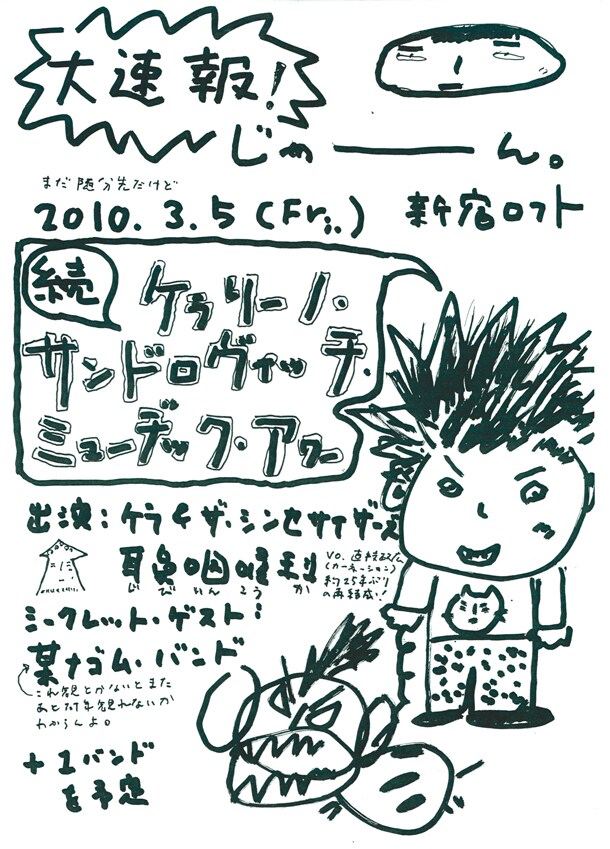 大速報!
じゃーーん。
まだ随分先だけど
2010.3.5(Fri.) 新宿ロフト
続
ケラリーノ・
サンドロヴィッチ・
ミューヂック・アワー
出演:ケラ&ザ・シンセサイザーズ
耳鼻咽喉科
じびいんこうか
vo. 直枝政広
(カーネーション)
約25年ぶり
の再結成!
シークレット・ゲスト:
某ナゴム・バンド
これ観とかないとまた
あと何年観れないか
わからんよ。
+1バンド
を予定